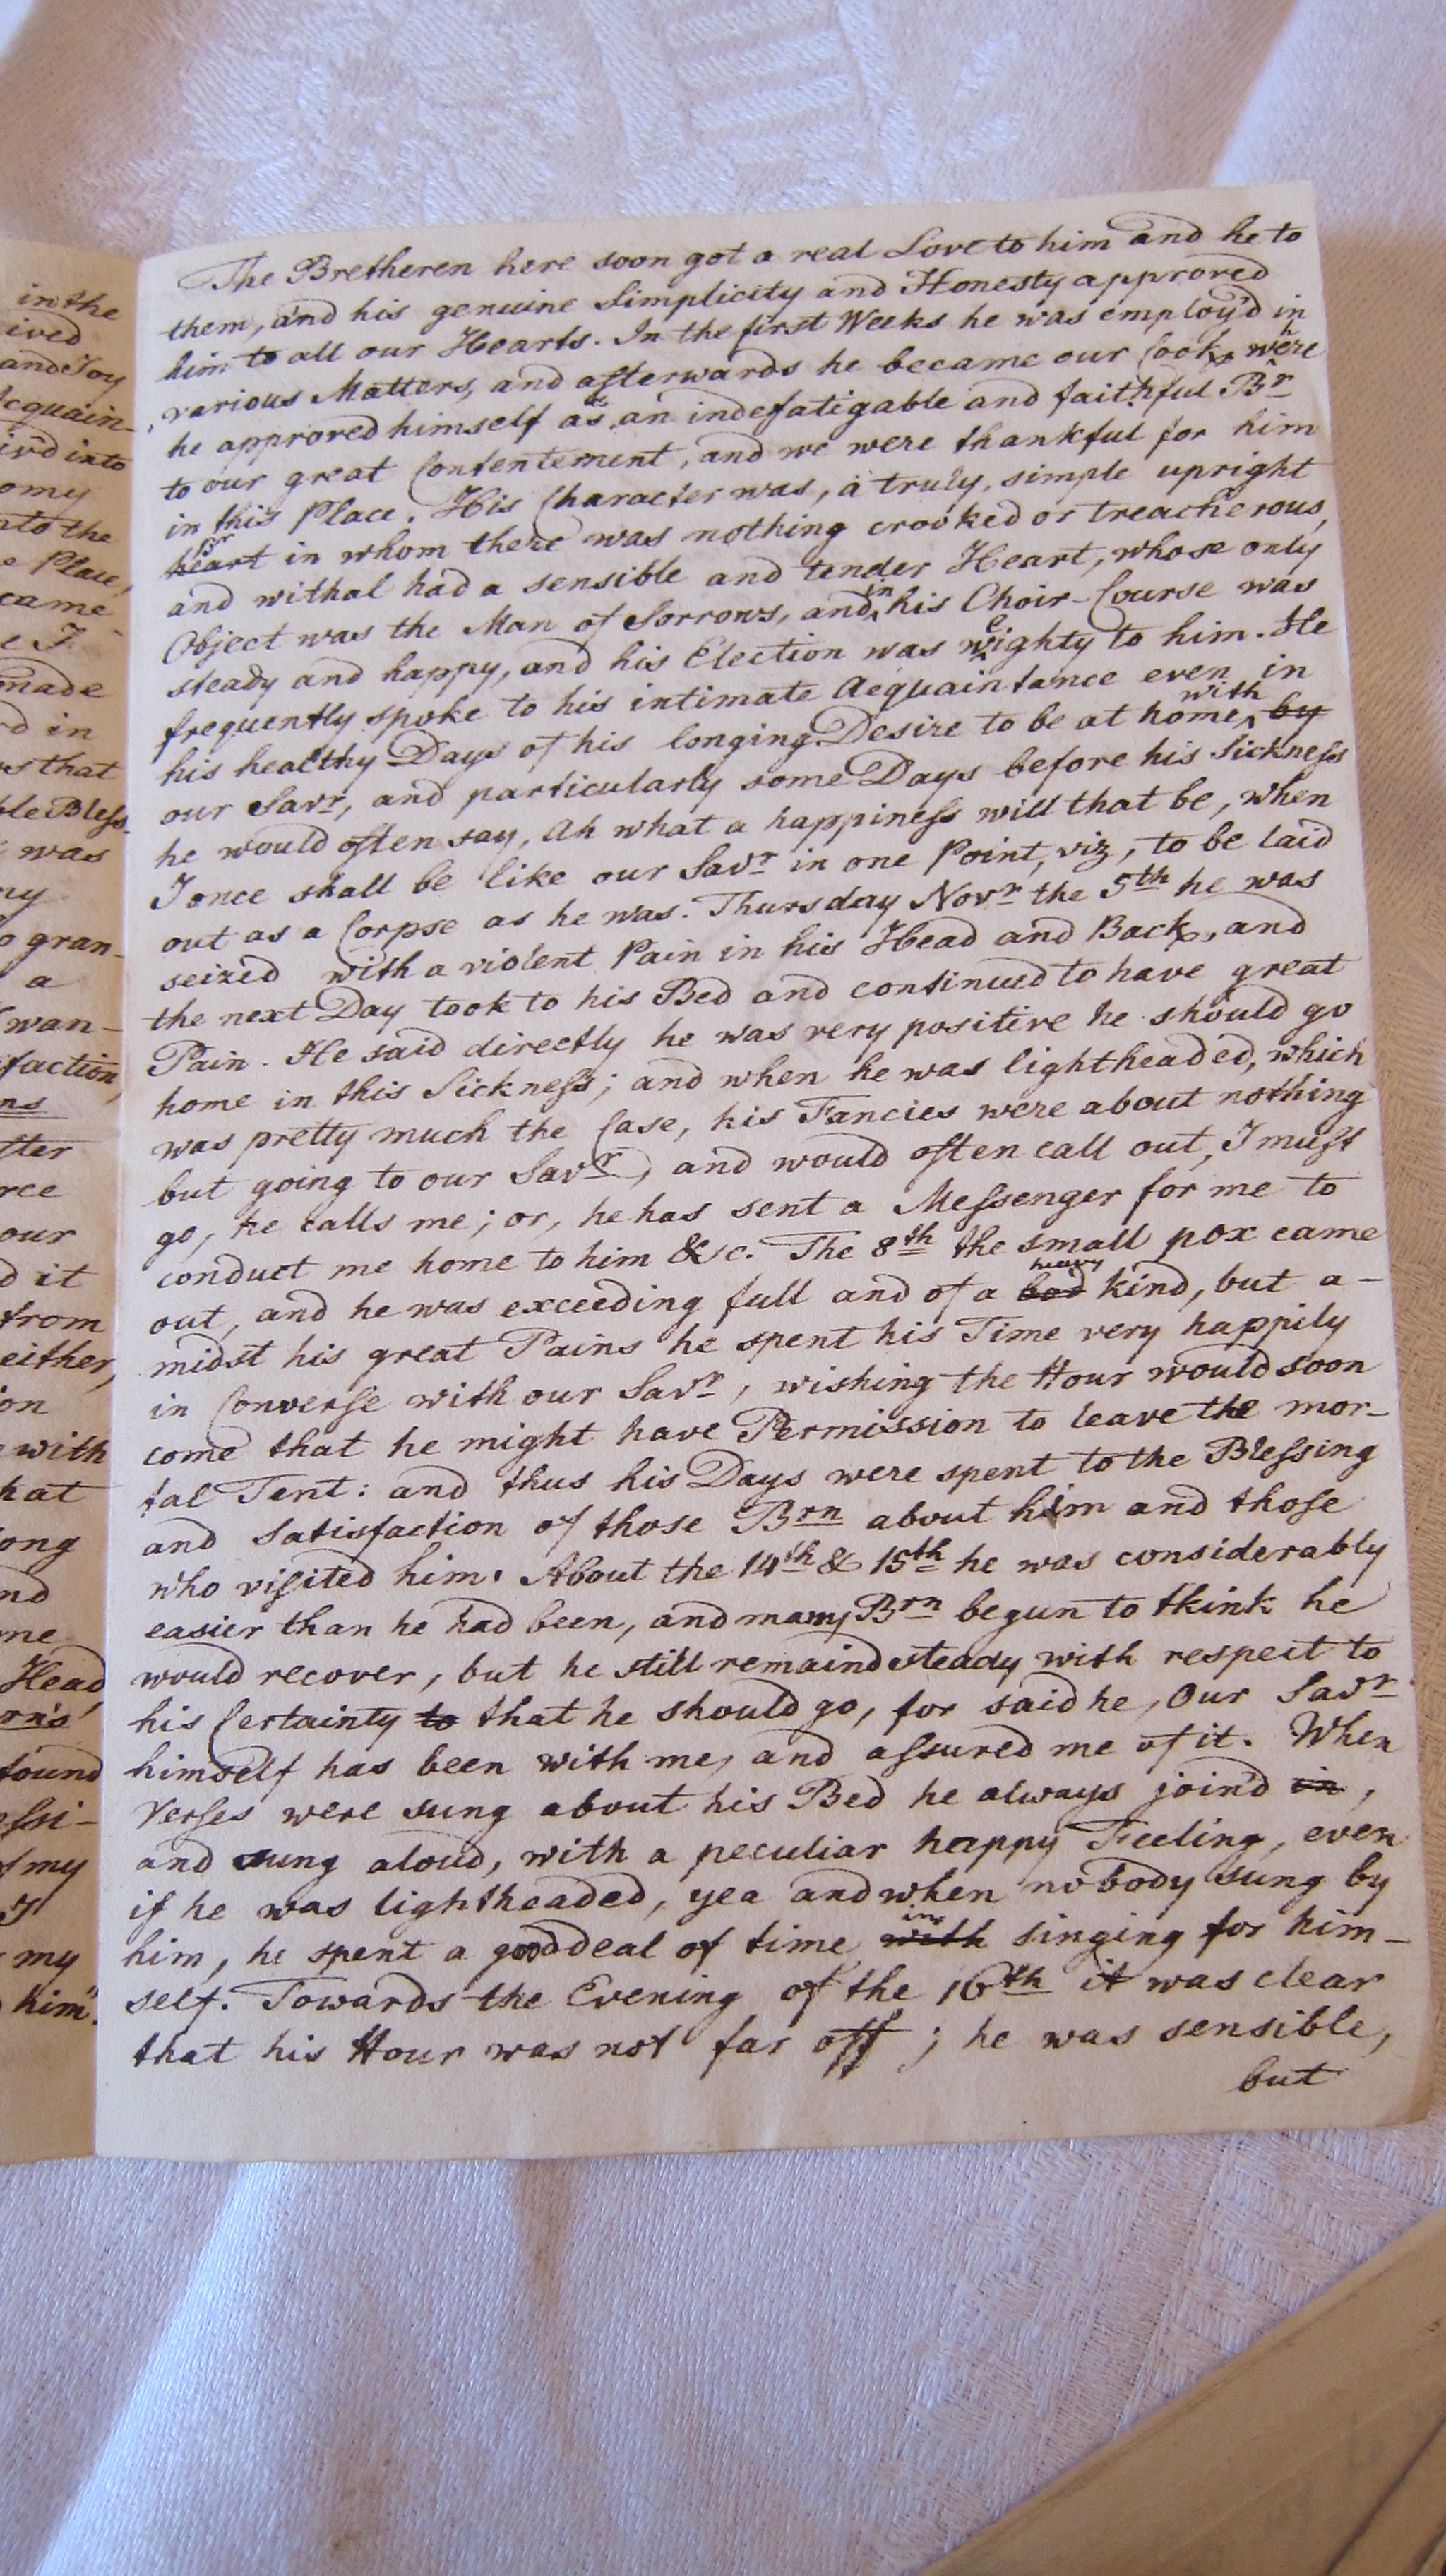 in the
ived
and Joy
Acquain-
iv'd into
omy
nto the
e Place,
came
e I
made
rd in
us that
ble Bless-
was
ny
o gran-
a
wan-
faction,
ns
tter
rce
our
d it
from
either,
on
e with
hat
ong
nd
me
Head,
rn's
found
essi-
of my
I
my
him".
The Bretheren here soon got a real Love to him and he to
them, and his genuine Simplicity and Honesty approved
him to all our Hearts. In the first Weeks he was employ'd in
various Matters, and afterwards he became our Cook, where
he approved himself as an indefatigable and faithful Br
to our great Contentement, and we were thankful for him
in this Place. His Character was, a truly, simple upright
heart Br in whom there was nothing crooked or treacherous,
and withal had a sensible and tender Heart, whose only
Object was the Man of Sorrows, and in his Choir-Course was
steady and happy, and his Election was weighty to him. He
frequently spoke to his intimate Acquaintance even in
his healthy Days of his longing Desire to be at home with by
our Savr, and particularly some Days before his Sickness
he would often say, Ah what a happiness will that be, when
I once shall be like our Savr in one Point, viz, to be laid
out as a Corpse as he was. Thursday Novr the 5th he was
seized with a violent Pain in his Head and Back, and
the next Day took to his Bed and continued to have great
Pain. He said directly he was very positive he should go
home in this Sickness; and when he was lightheaded, which
was pretty much the Case, his Fancies were about nothing
but going to our Savr, and would often call out, I must
go, he calls me; or, he has sent a Messenger for me to
conduct me home to him &c. The 8th the small pox came
out, and he was exceeding full and of a bad heavy kind, but a-
midst his great Pains he spent his Time very happily
in Converse with our Savr, wishing the Hour would soon
come that he might have Permission to leave the mor-
tal Tent: and thus his Days were spent to the Blessing
and Satisfaction of those Brn about him and those
who visited him. About the 14th & 15th he was considerably
easier than he had been, and many Brn begun to think he
would recover, but he still remaind steady with respect to
his Certainty to that he should go, for said he, Our Savr
himself has been with me, and assured me of it. When
Verses were sung about his Bed he always join'd in,
and sung aloud, with a peculiar happy Feeling, even
if he was lightheaded, yea and when nobody sung by
him, he spent a good deal of time with in singing for him-
self. Towards the Evening of the 16th it was clear
that his Hour was not far off; he was sensible,
but